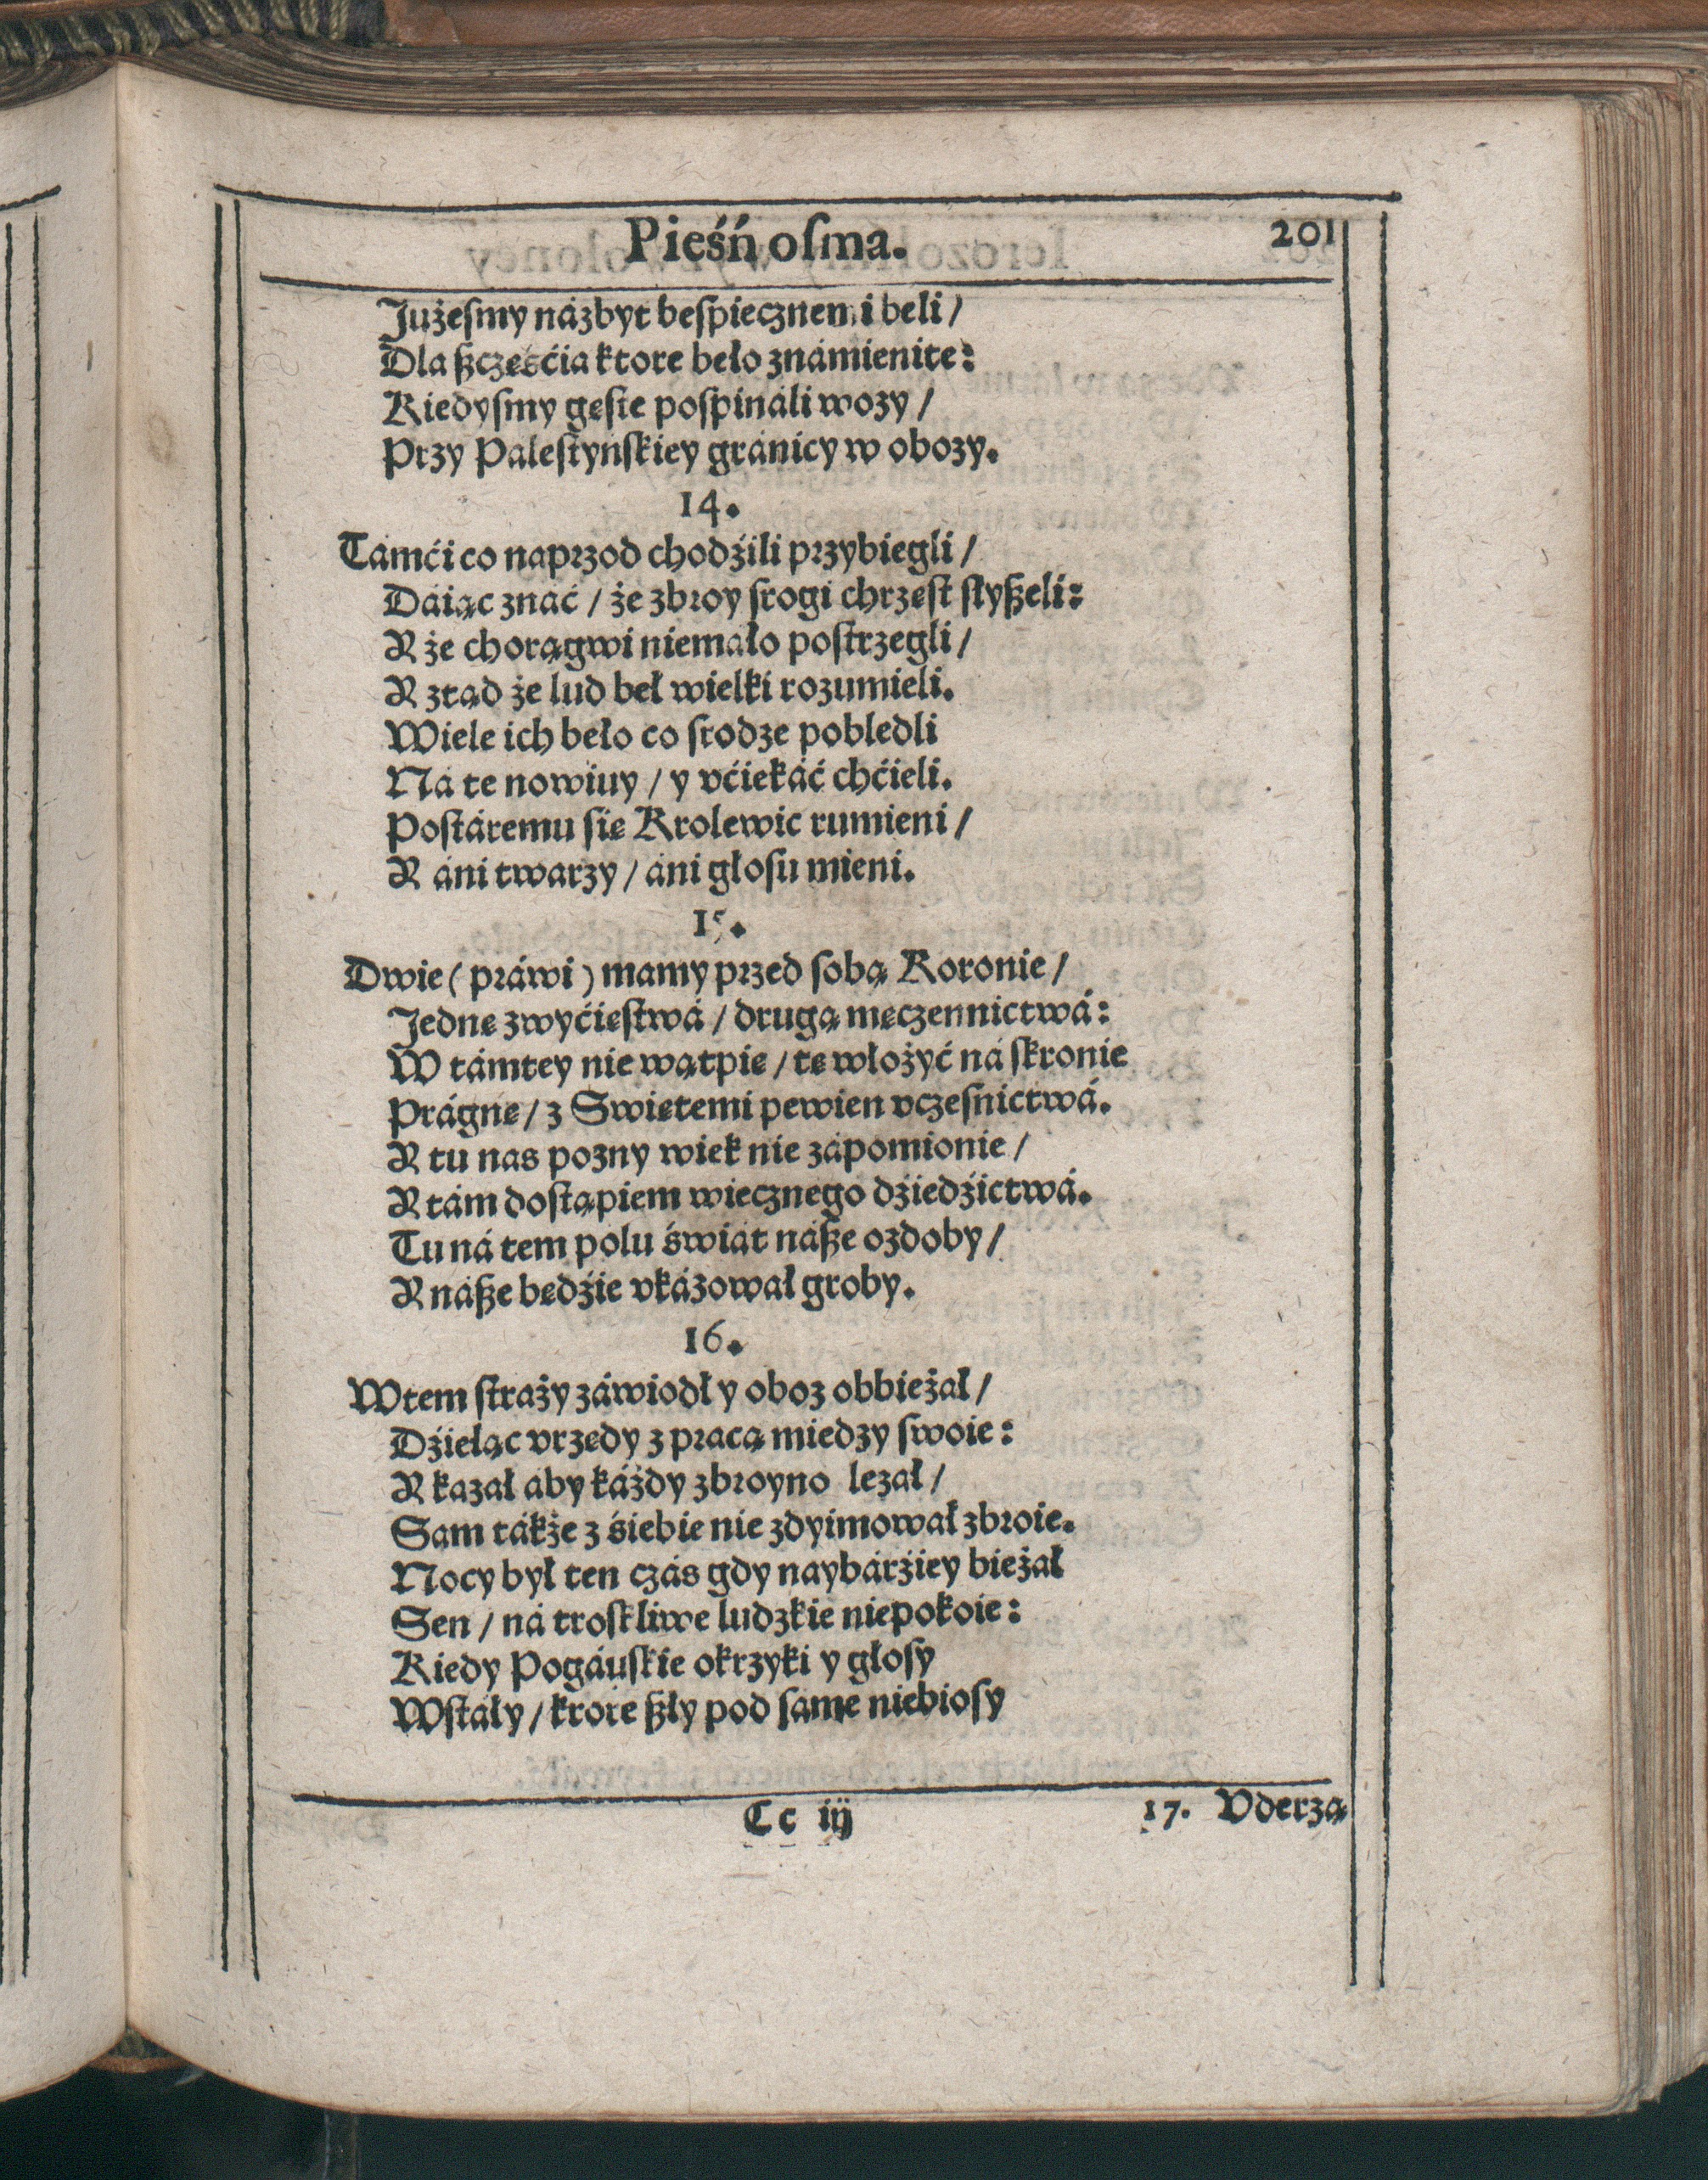 Pieśń oſma. 201
Jużeſmy názbyt beſpiecznemi beli /
Dla ßczęśćia ktore beło známienite:
Kiedyſmy gęſte poſpináli wozy /
Przy Paleſtyńſkiey gránicy w obozy.
14.
Támći co naprzod chodźili przybiegli /
Dáiąc znáć / że zbroy ſrogi chrzęſt ſłyßeli:
A że chorągwi niemáło poſtrzegli /
A ztąd że lud beł wielki rozumieli.
Wiele ich beło co ſrodze pobledli
Ná te nowiuy / y vćiekáć chćieli.
Poſtáremu ſię Krolewic rumieni /
A áni twarzy / áni głoſu mieni.
15.
Dwie ( práwi ) mamy przed ſobą Koronie /
Jednę zwyćięſtwá / drugą męczennictwá:
W támtey nie wątpię / tę włożyć ná ſkronie
Prágnę / z Swiętemi pewien vczeſnictwá.
A tu nas pozny wiek nie zápomionie /
A tám doſtąpiem wiecznego dźiedźictwá.
Tu ná tem polu świát náße ozdoby /
A náße będźie vkázował groby.
16.
Wtem ſtraży záwiodł y oboz obbieżał /
Dźieląc vrzędy z pracą miedzy ſwoie:
A kazał áby káżdy zbroyno lezał /
Sam tákże z śiebie nie zdyimował zbroie.
Nocy był ten czás gdy naybárźiey bieżał
Sen / ná troſkliwe ludzkie niepokoie:
Kiedy Pogáuſkie okrzyki y głoſy
Wſtáły / krore ßły pod ſame niebioſy
Cc iij 17. Vderzą